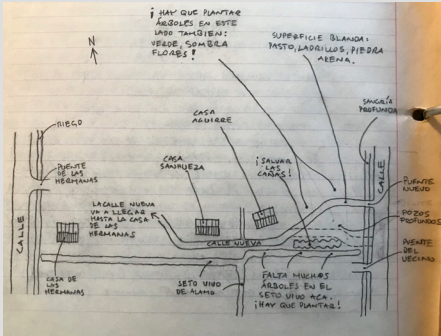 ¡HAY QUE PLANTAR
ÁRBOLES EN ESTE
LADO TAMBIEN:
VERDE, SOMBRA
FLORES!
N
SUPERFICIE BLANDA:
PASTO, LADRILLOS, PIEDRA
ARENA.
SANGRÍA
PROFUNDA
RIEGO
CASA
AGUIRRE
PUENTE
DE LAS
HERMANAS
CASA
SANHUEZA
¡SALVAR
LAS
CAÑAS!
CALLE
PUENTE
NUEVO
LA CALLE NUEVA
VA A LLEGAR
HASTA LA CASA
DE LAS
HERMANAS
POZOS
PROFUNDOS
CALLE
CALLE NUEVA
PUENTE
DEL
VECINO
CASA DE
LAS
HERMANAS
SETO VIVO
DE ALAMO
FALTA MUCHOS
ÁRBOLES EN EL
SETO VIVO ACA.
¡HAY QUE PLANTAR!